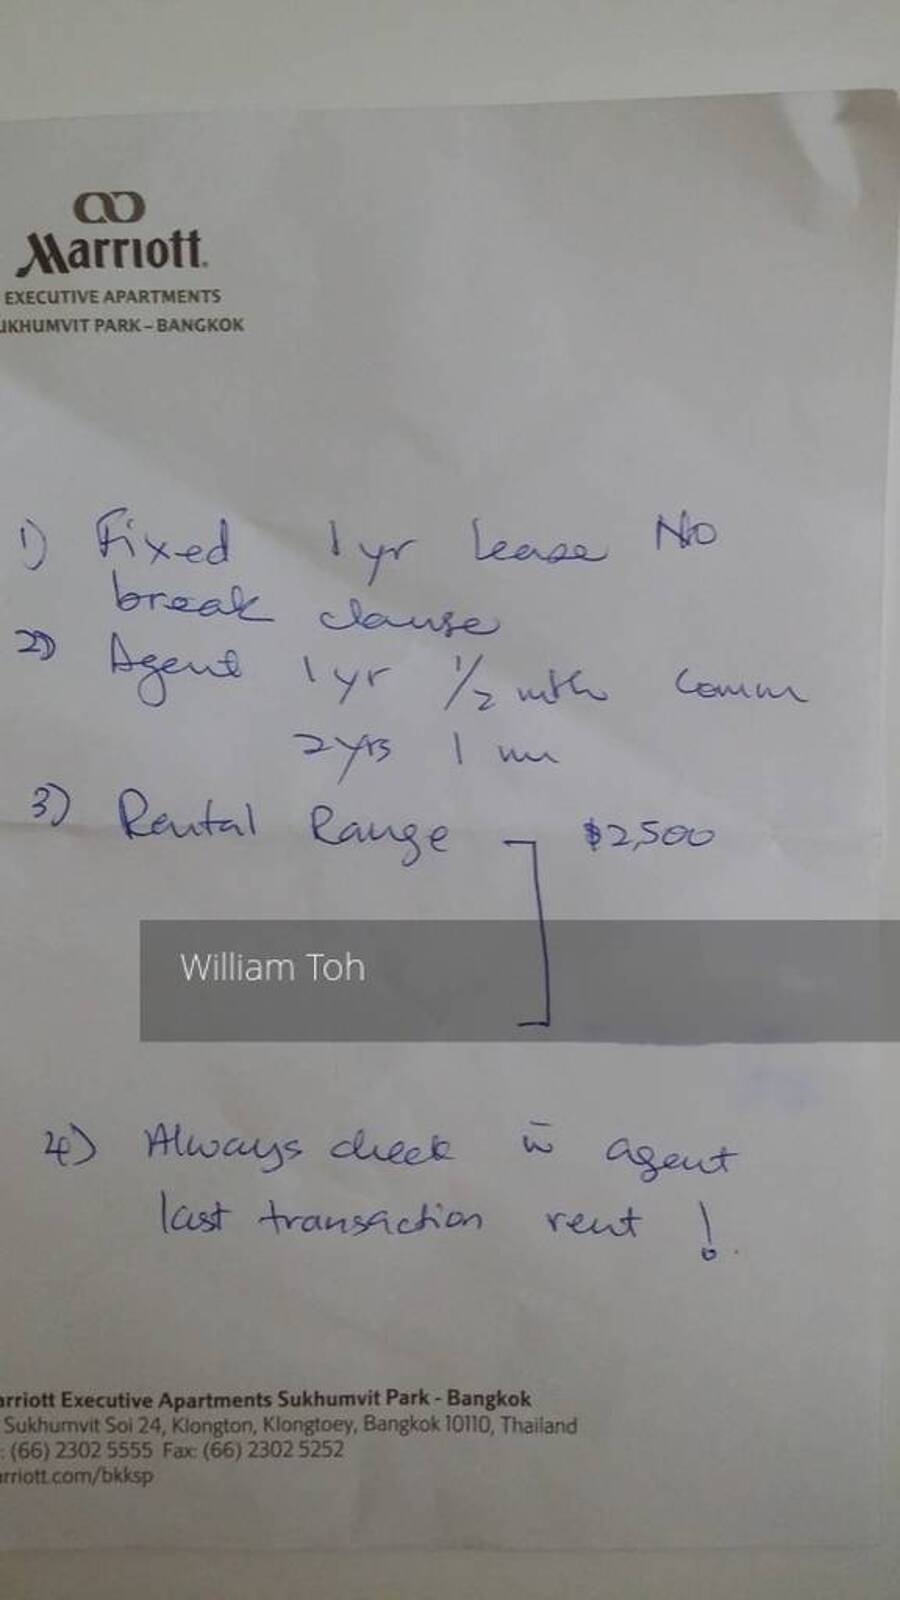 Marriott.
EXECUTIVE APARTMENTS
UKHUMVIT PARK – BANGKOK
1) Fixed 1 yr lease No
break clause
2) Agent 1 yr 1/2 mth Comm
2 yrs 1 m
3) Rental Range $2,500
William Toh
4) Always check w agent
last transaction rent !
arriott Executive Apartments Sukhumvit Park - Bangkok
Sukhumvit Soi 24, Klongton, Klongtoey, Bangkok 10110, Thailand
: (66) 2302 5555 Fax: (66) 2302 5252
arriott.com/bkksp